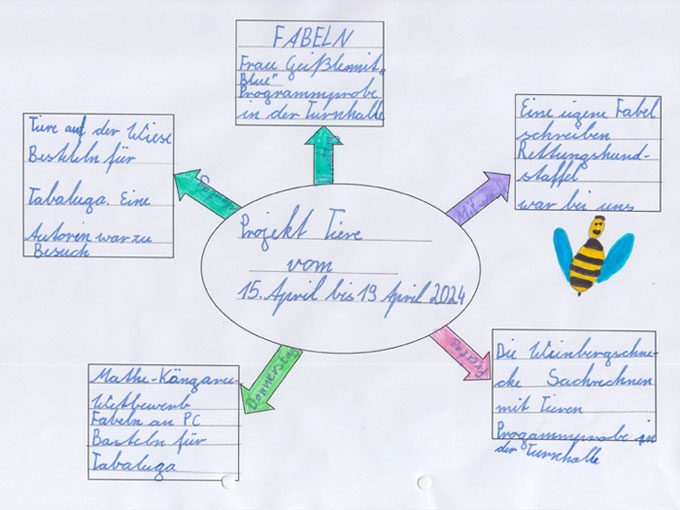 FABELN
Frau Geißler mit "
Blue"
Programmprobe
in der Turnhalle
Tiere auf der Wiese
Besteln für
Tabaluga. Eine
Autorin war zu
Besuch
Eine eigene Fabel
schreiben
Rettungshund-
staffel
war bei uns
Mittwoch
Projekt Tiere
vom
15. April bis 19 April 2024
Donnerstag
Freitag
Mathe-Känguru-
Wettbewerb
Fabeln an PC
Basteln für
Tabaluga
Die Weinbergschne-
cke Sachrechnen
mit Tieren
Progammprobe in
der Turnhalle